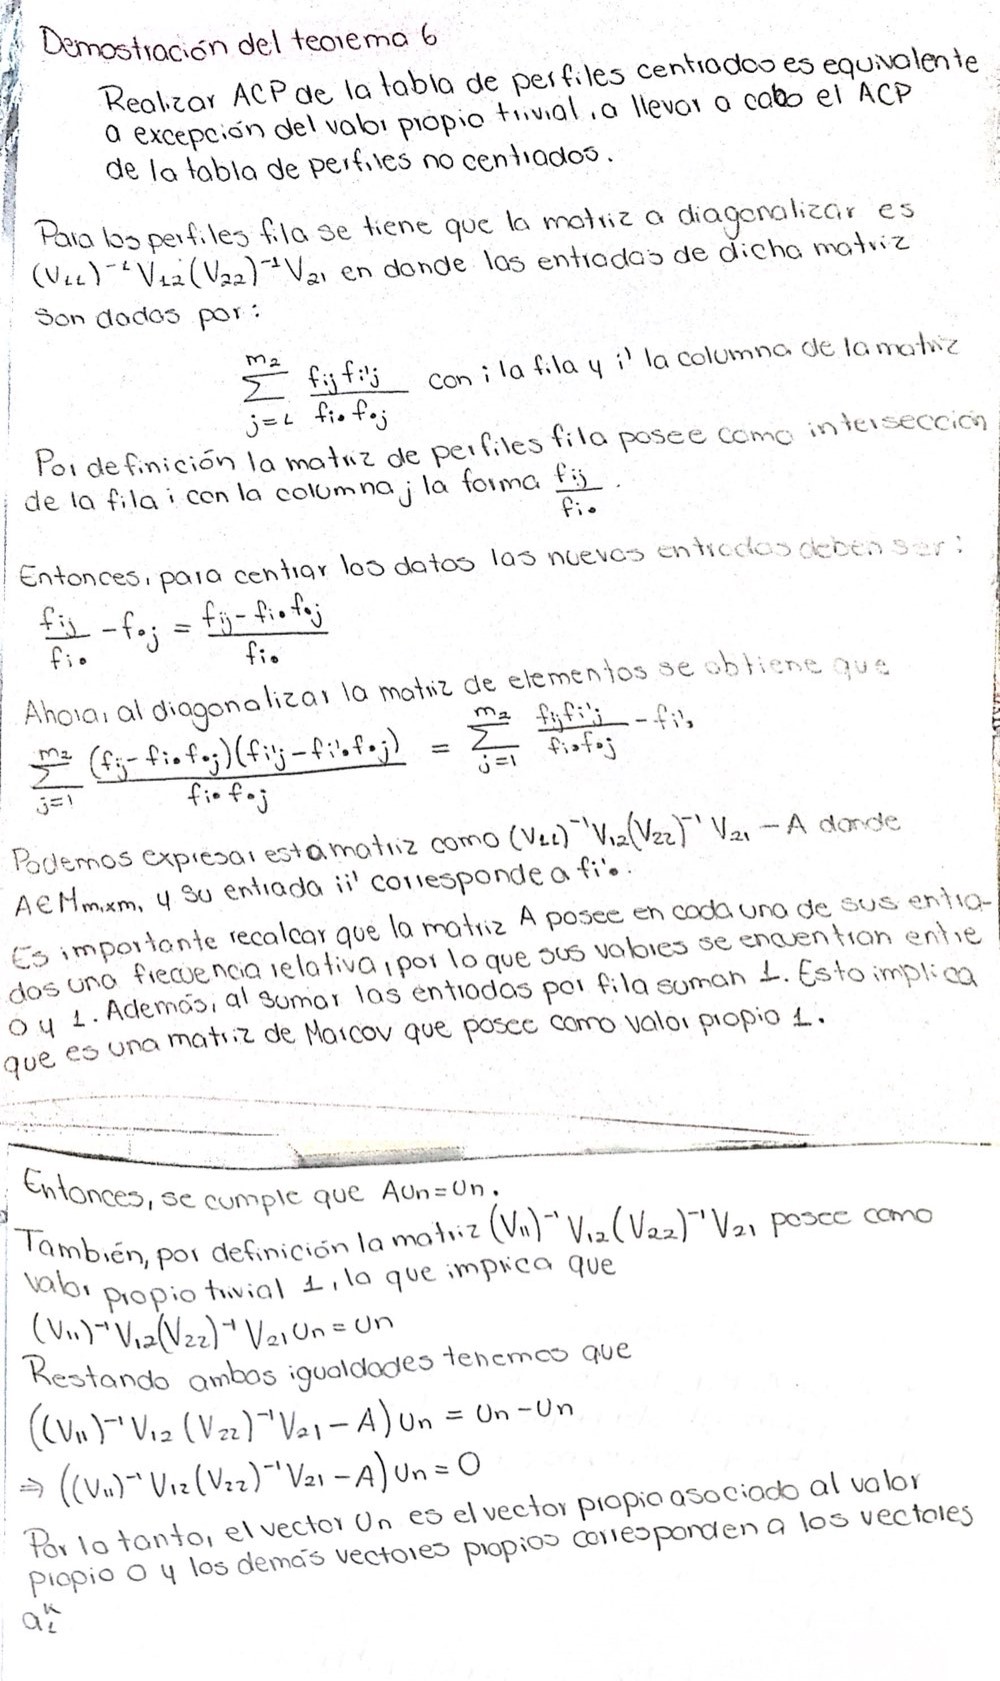 Demostración del teorema 6
Realizar ACP de la tabla de perfiles centrados es equivalente
a excepción del valor propio trivial, a llevar a cabo el ACP
de la tabla de perfiles no centrados.
Para los perfiles fila se tiene que la matriz a diagonalizar es
(V₁₁)⁻¹ V₁₂ (V₂₂)⁻¹ V₂₁ en donde las entradas de dicha matriz
son dados por:
∑_{j=1}^{m₂} (f_{ij} f_{i'j})/(f_{i•} f_{•j}) con i la fila y i' la columna de la matriz
Por definición la matriz de perfiles fila posee como intersección
de la fila i con la columna j la forma f_{ij}/f_{i•}.
Entonces, para centrar los datos las nuevas entradas deben ser:
f_{ij}/f_{i•} - f_{•j} = (f_{ij} - f_{i•} f_{•j})/f_{i•}
Ahora, al diagonalizar la matriz de elementos se obtiene que
∑_{j=1}^{m₂} ((f_{ij} - f_{i•} f_{•j})(f_{i'j} - f_{i'•} f_{•j}))/(f_{i•} f_{•j}) = ∑_{j=1}^{m₂} (f_{ij} f_{i'j})/(f_{i•} f_{•j}) - f_{i'•}
Podemos expresar esta matriz como (V₁₁)⁻¹ V₁₂ (V₂₂)⁻¹ V₂₁ - A donde
A ∈ M_{m₁×m₁} y su entrada ii' corresponde a f_{i'•}.
Es importante recalcar que la matriz A posee en cada una de sus entra-
das una frecuencia relativa, por lo que sus valores se encuentran entre
0 y 1. Además, al sumar las entradas por fila suman 1. Esto implica
que es una matriz de Marcov que posee como valor propio 1.
Entonces, se cumple que AUn=Un.
También, por definición la matriz (V₁₁)⁻¹ V₁₂ (V₂₂)⁻¹ V₂₁ posee como
valor propio trivial 1, lo que implica que
(V₁₁)⁻¹ V₁₂ (V₂₂)⁻¹ V₂₁ Un = Un
Restando ambas igualdades tenemos que
((V₁₁)⁻¹ V₁₂ (V₂₂)⁻¹ V₂₁ - A) Un = Un - Un
⇒ ((V₁₁)⁻¹ V₁₂ (V₂₂)⁻¹ V₂₁ - A) Un = 0
Por lo tanto, el vector Un es el vector propio asociado al valor
propio 0 y los demás vectores propios corresponden a los vectores
a₁ᵏ